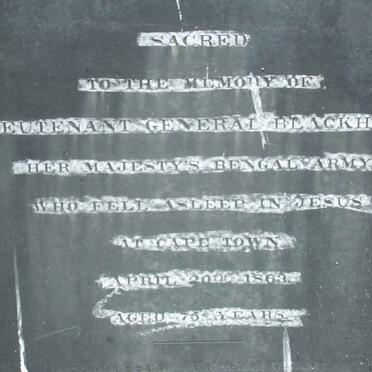 SACRED
TO THE MEMORY OF
EUTENANT GENERAL BLACKH
HER MAJESTY'S BENGAL ARMY
WHO FELL ASLEEP IN JESUS
AT CAPE TOWN
APRIL 20TH 1863
AGED 75 YEARS